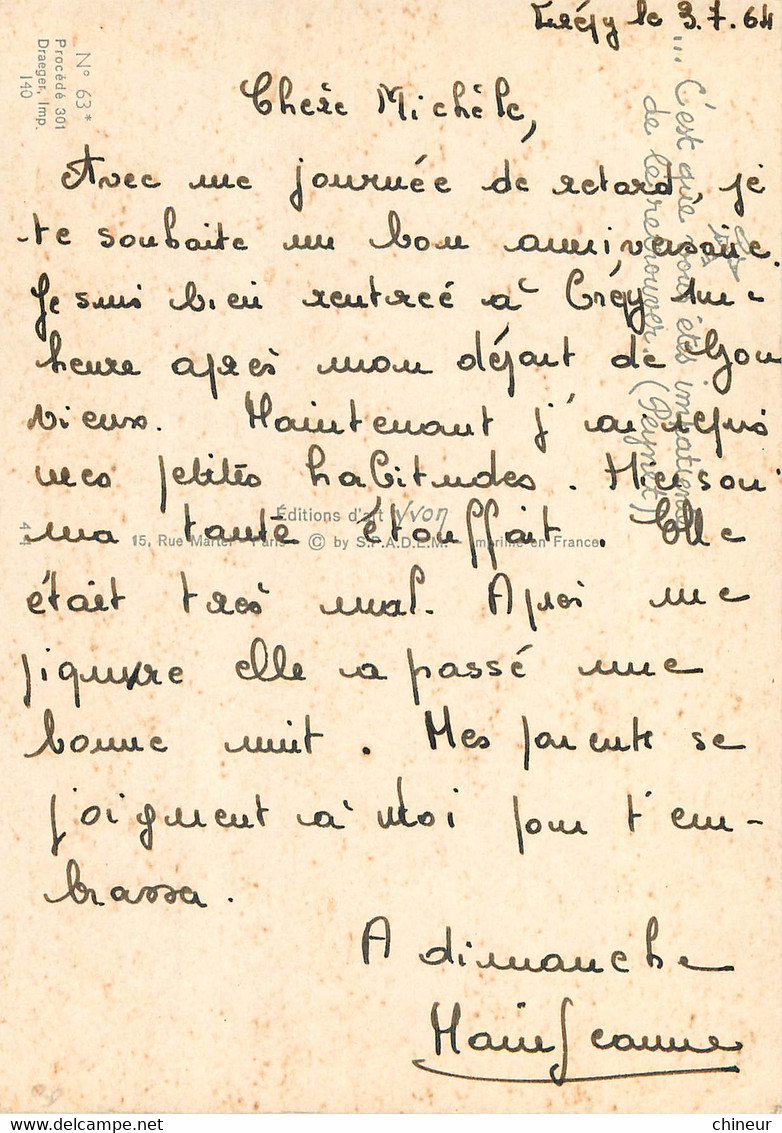 Crépy le 3.7.64
N° 63*
Procédé 301
Draeger, Imp.
140
... C'est que vous êtes impatiente
de le retrouver ! (Peynet)
Chère Michèle,
Avec une journée de retard, je
te souhaite un bon anniversaire.
Je suis bien rentrée à Crépy une
heure après mon départ de Gou
vieux. Maintenant j'ai repris
mes petites habitudes. Hier soir
ma tante étouffait. Elle
était très mal. Après une
piqure elle a passé une
bonne nuit. Mes parents se
joignent à moi pour t'em-
brassa.
Éditions d'art Yvon
15, Rue Martel - Paris - © by S.P.A.D.E.M. - Imprimé en France
A dimanche
Marie Jeanne
chineur